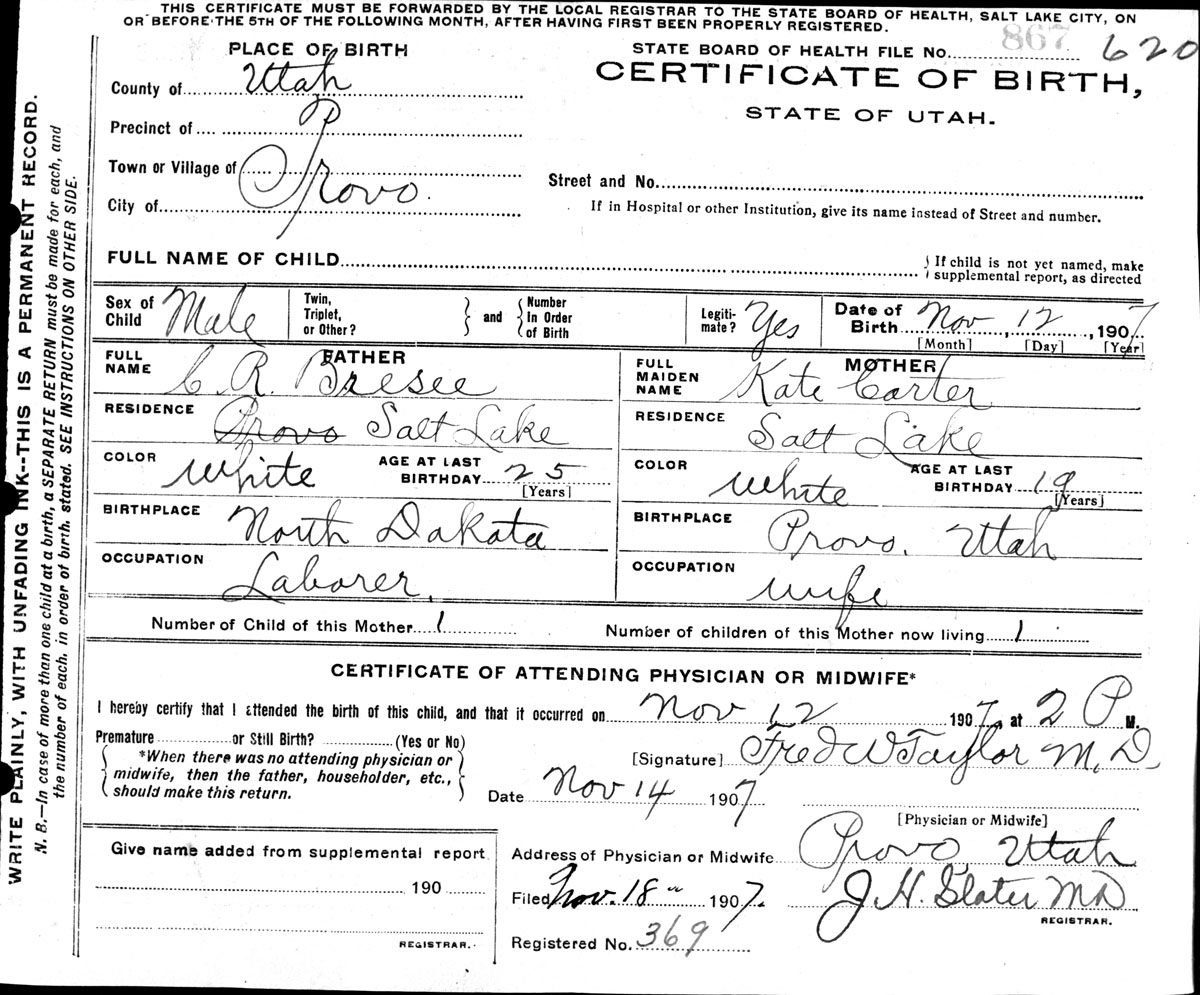 THIS CERTIFICATE MUST BE FORWARDED BY THE LOCAL REGISTRAR TO THE STATE BOARD OF HEALTH, SALT LAKE CITY, ON
OR BEFORE THE 5TH OF THE FOLLOWING MONTH, AFTER HAVING FIRST BEEN PROPERLY REGISTERED.
PLACE OF BIRTH
STATE BOARD OF HEALTH FILE No. 867 620
CERTIFICATE OF BIRTH,
STATE OF UTAH.
County of Utah
Precinct of P
Town or Village of
City of Provo.
Street and No.
If in Hospital or other Institution, give its name instead of Street and number.
FULL NAME OF CHILD
If child is not yet named, make
supplemental report, as directed
Sex of Child Male
Twin, Triplet, or Other?
and
Number In Order of Birth
Legiti-mate? Yes
Date of Birth Nov, 12, 1907
[Month] [Day] [Year]
FATHER
FULL NAME C. R. Bresee
RESIDENCE Provo Salt Lake
COLOR White
AGE AT LAST BIRTHDAY 25
[Years]
BIRTHPLACE North Dakota
OCCUPATION Laborer.
MOTHER
FULL MAIDEN NAME Kate Carter
RESIDENCE Salt Lake
COLOR White
AGE AT LAST BIRTHDAY 19
[Years]
BIRTHPLACE Provo. Utah
OCCUPATION Wife
Number of Child of this Mother 1
Number of children of this Mother now living 1
CERTIFICATE OF ATTENDING PHYSICIAN OR MIDWIFE*
I hereby certify that I attended the birth of this child, and that it occurred on Nov 12 1907, at 2 P M.
Premature or Still Birth? (Yes or No)
*When there was no attending physician or
midwife, then the father, householder, etc.,
should make this return.
[Signature] Fred W Taylor M.D.
Date Nov 14 1907
[Physician or Midwife]
Give name added from supplemental report
190
REGISTRAR.
Address of Physician or Midwife Provo, Utah
Filed Nov. 18 1907.
J. H. Slater MD
REGISTRAR.
Registered No. 369
WRITE PLAINLY, WITH UNFADING INK--THIS IS A PERMANENT RECORD.
N. B.—In case of more than one child at a birth, a SEPARATE RETURN must be made for each, and
the number of each, in order of birth, stated. SEE INSTRUCTIONS ON OTHER SIDE.